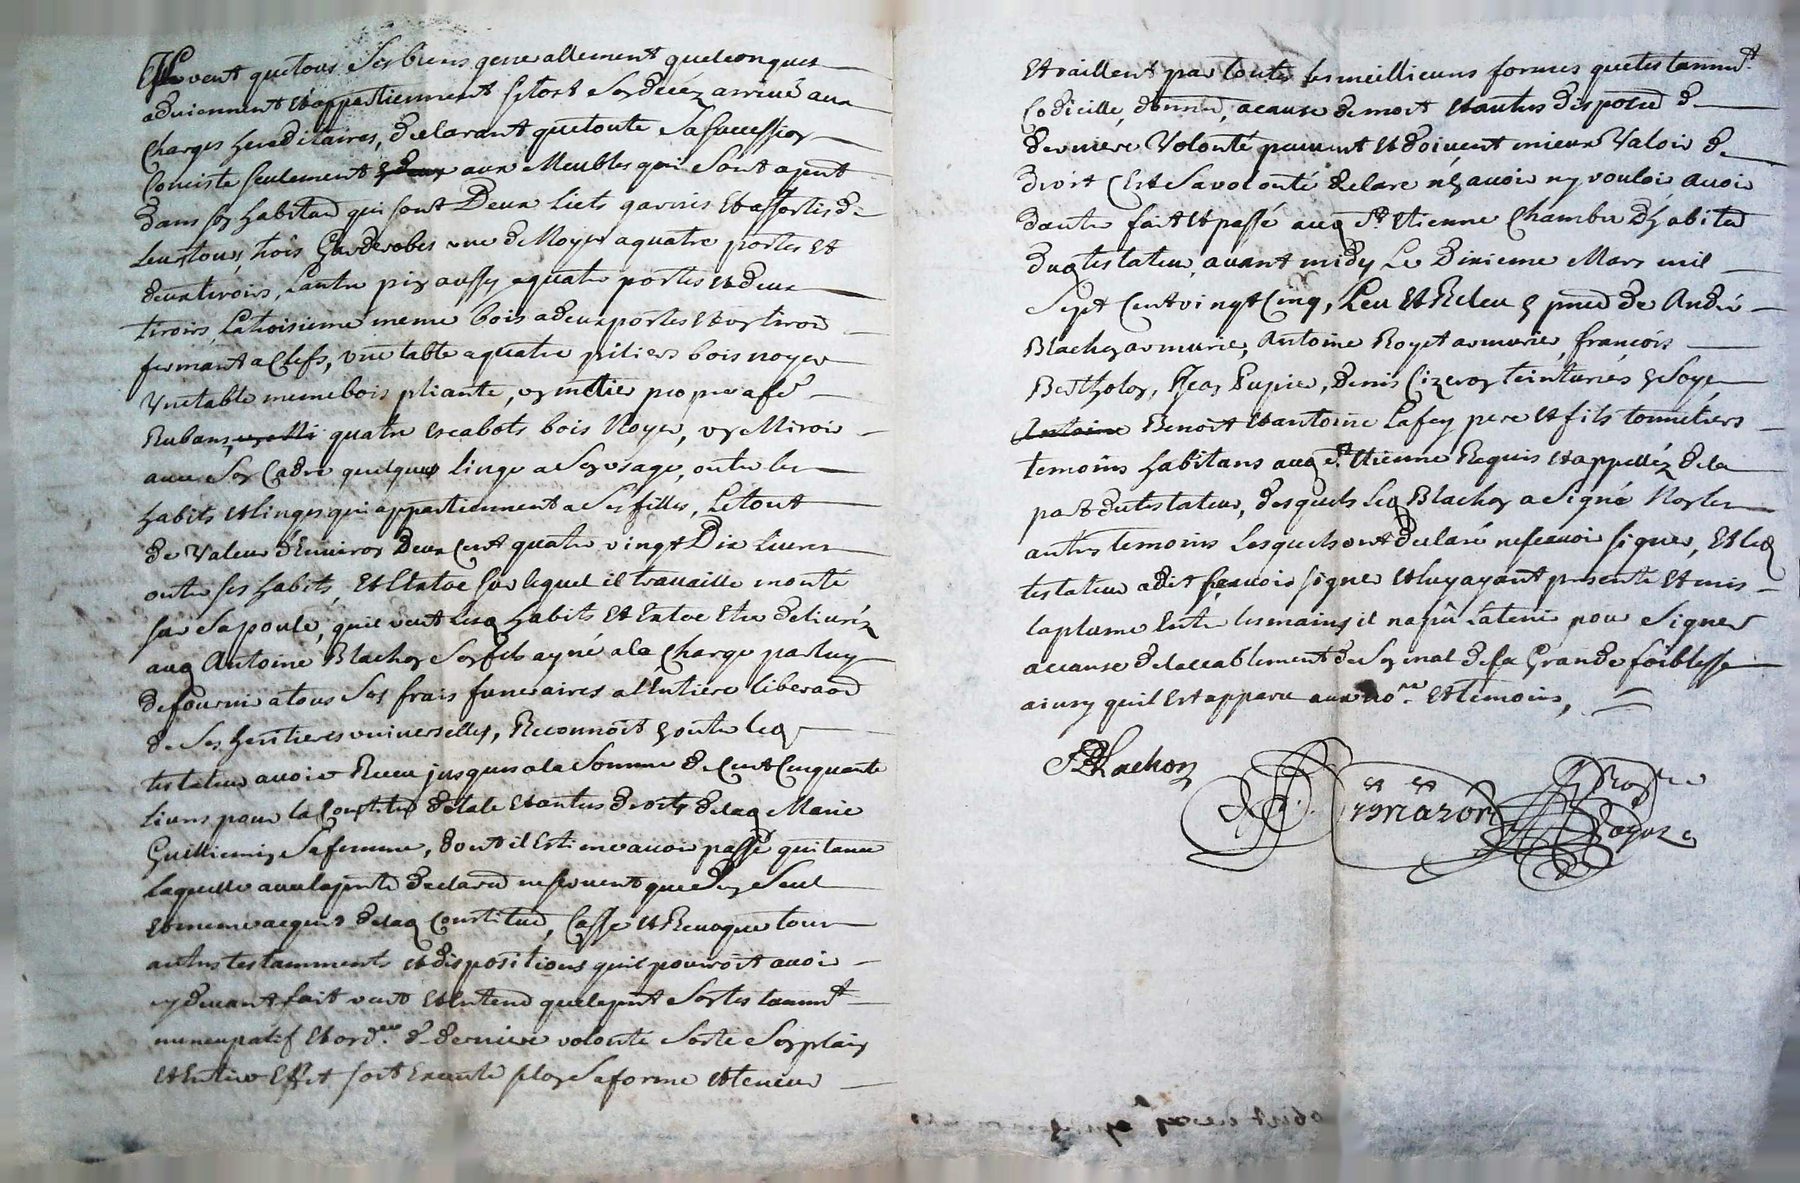 Il veut que tous ses biens generallement quelconques
adviennent et appartiennent sitost son décéz arrivé aux
charges hereditaires, declarant que toute sa succession
consiste seulement aux Meubles qui sont a pnt
dans son habitaõn qui sont Deux Liets garnis et assortis de
leur tour, trois Garderobes une de Noyer a quatre portes et
deux tiroirs, Lautre pin aussy a quatre portes et deux
tiroirs, La troisieme meme bois a deux portes et un tiroir
fermant a Clefs, une table a quatre piliers bois noyer
une table meme bois pliante, un métier propre a fe.
Rubans, quatre escabots bois Noyer, un Miroir
avec son Cadre quelques linge a son usage, outre les
habits et linges qui appartiennent a ses filles, Le tout
de Valeur d'Environ Deux cent quatre vingt Dix Livres
outre ses habits, et l'Estoc sur lequel il travaille monté
sur sa poule, quil veut lesd habits et Estoc etre delivréz
aud Antoine Blachon son fils ayné a la charge par luy
de fournir a tous ses frais funeraires a l'Entiere liberaõn
de ses heritieres universelles, Reconnoit en outre led
testateur avoir Receu jusques a la somme de Cent Cinquante
livres pour la Constituõn dotale et autres droits de lad Marie
Guilliemin sa femme, dont il Est me avoir passé quitance
laquelle avec la pnte declaraõn ne servent que d'un seul
et meme acquit de lad Constituõn, Casse et Revoque tous
autres testamments et dispositions quil pourroit avoir
cy devant fait veut et Entend que le pnt son testammt
nuncupatif et ordre de derniere volonté sorte son plain
et Entier Effet soit Executé selon sa forme et teneur
Et vaillent par toutes les meillieures formes que testammt
Codicille, donnaõn, a cause de mort et autres disposiõn de
derniere Volonté peuvent et doivent mieux Valoir de
droit C'Est sa volonté declare n'En avoir ny vouloir avoir
dautre fait et passé aud St Etienne Chambre D'habitaõn
dud testateur, avant midy Le Dixieme Mars mil
Sept Cent vingt Cinq, Leu et Releu en pnce de André
Blachon armurier, Antoine Royet armurier, françois
Bertholon, Jean Pupier, Denis Cizeron teinturiers en Soye
Antoine Benoit et antoine Lafay pere et fils tonneliers
temoins habitans aud St Etienne Requis et appelléz de la
part du testateur, desquels led Blachon a signé Non les
autres temoins Lesquels ont declaré ne scavoir signer, Et led
testateur a dit scavoir signer et luy ayant presenté et mis
la plume Entre les mains il na pû La tenir pour Signer
a cause de laccablement de son mal de sa Grande foiblesse
ainsy quil Est apparu aux nore et temoins,
Blachon
Mazon